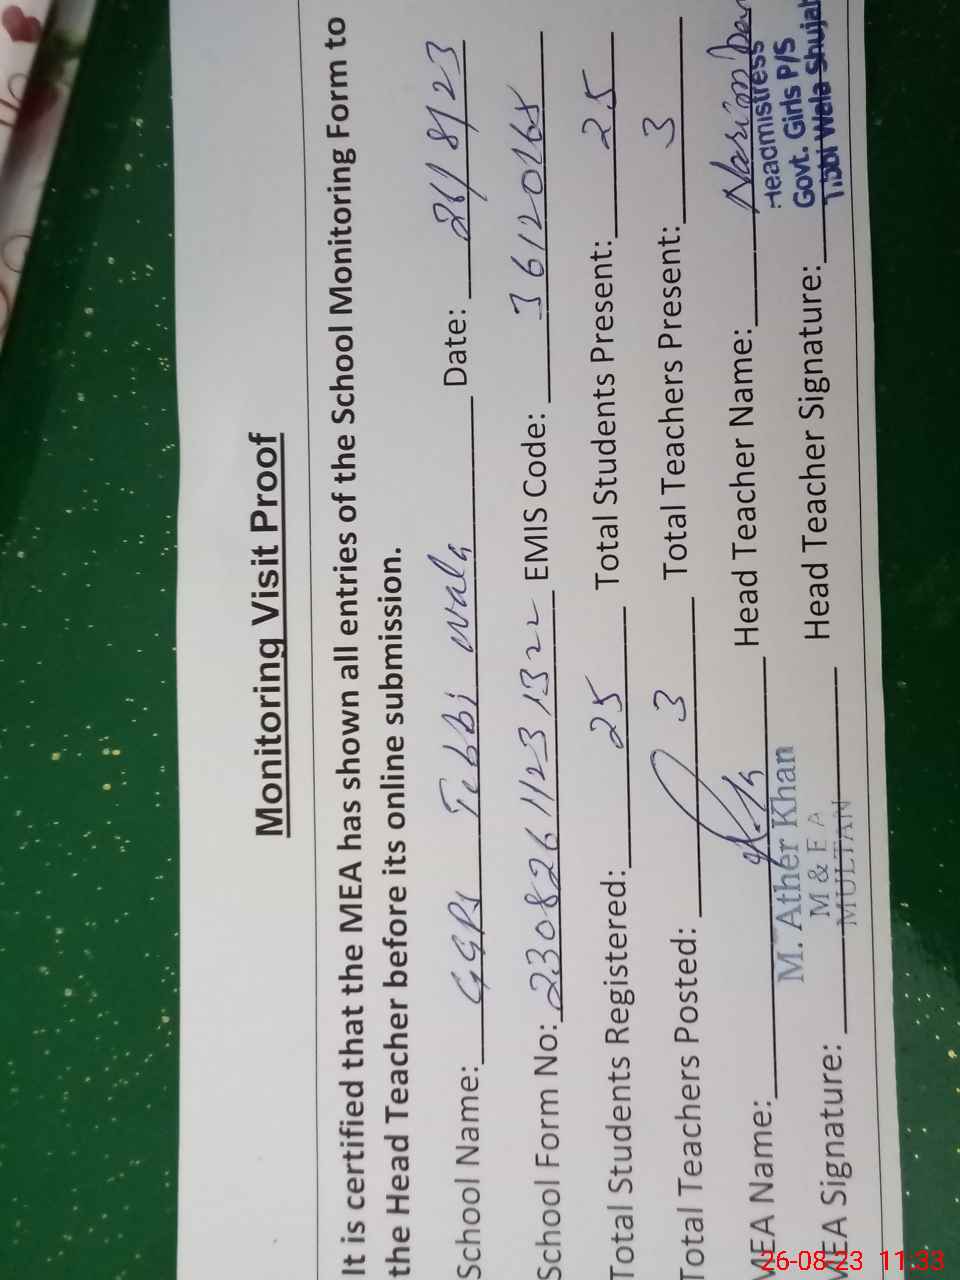 Monitoring Visit Proof
It is certified that the MEA has shown all entries of the School Monitoring Form to
the Head Teacher before its online submission.
School Name: GGPS Tibbi wala Date: 26/8/23
School Form No: 230826112313 22 EMIS Code: 36120168
Total Students Registered: 25 Total Students Present: 25
Total Teachers Posted: 3 Total Teachers Present: 3
MEA Name: Head Teacher Name:
M. Ather Khan
M & E A
MULTAN
Headmistress
Govt. Girls P/S
Tibbi Wala Shujab
MEA Signature: Head Teacher Signature:
26-08-23 11:33